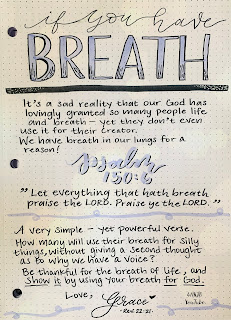 if you have
BREATH
It's a sad reality that our God has
lovingly granted so many people life
and breath – yet they don't even
use it for their Creator.
We have breath in our lungs for a
reason!
Psalm
150:6
"Let everything that hath breath
praise the LORD. Praise ye the LORD."
A very simple – yet powerful verse.
How many will use their breath for silly
things, without giving a second thought
as to why we have a voice?
Be thankful for the breath of life, and
show it by using your breath for God.
Love,
Grace
- Rev. 22:21